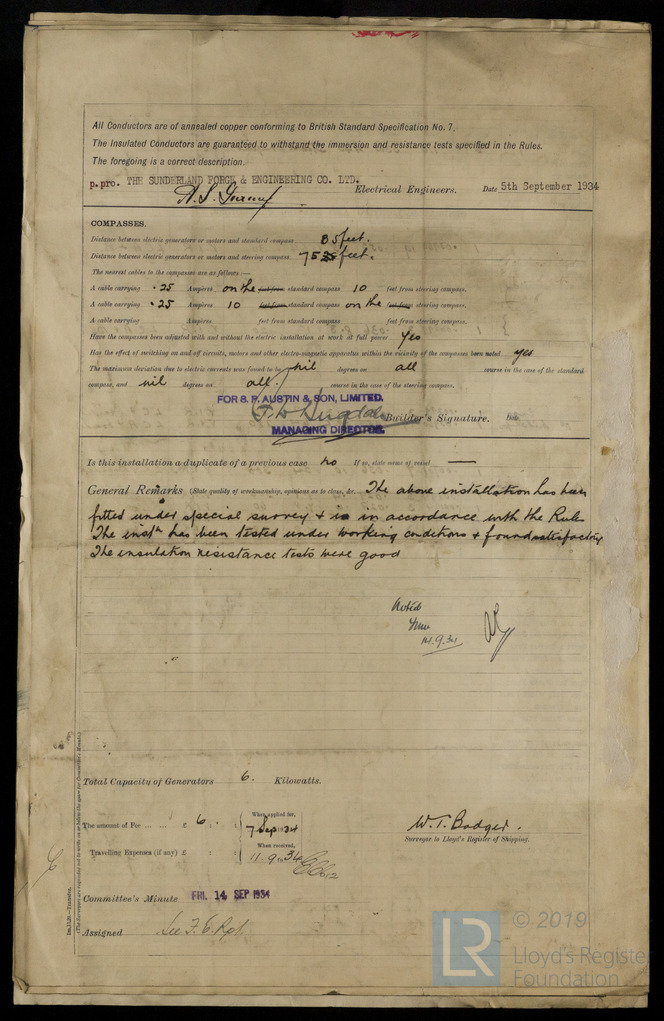 All Conductors are of annealed copper conforming to British Standard Specification No. 7.
The Insulated Conductors are guaranteed to withstand the immersion and resistance tests specified in the Rules.
The foregoing is a correct description.
p.pro. THE SUNDERLAND FORGE & ENGINEERING CO. LTD.
Electrical Engineers. Date 5th September 1934
COMPASSES.
Distance between electric generators or motors and standard compass 85 feet.
Distance between electric generators or motors and steering compass 75 feet.
The nearest cables to the compasses are as follows:—
A cable carrying .25 Ampères on the feet from standard compass 10 feet from steering compass.
A cable carrying .25 Ampères 10 feet from standard compass on the feet from steering compass.
A cable carrying Ampères feet from standard compass feet from steering compass.
Have the compasses been adjusted with and without the electric installation at work at full power yes
Has the effect of switching on and off circuits, motors and other electro-magnetic apparatus within the vicinity of the compasses been noted yes
The maximum deviation due to electric currents was found to be nil degrees on all course in the case of the standard
compass, and nil degrees on all course in the case of the steering compass.
FOR S. P. AUSTIN & SON, LIMITED.
Builder's Signature.
MANAGING DIRECTOR.
Is this installation a duplicate of a previous case no If so, state name of vessel —
General Remarks (State quality of workmanship, opinions as to class, &c. The above installation has been
fitted under special survey & is in accordance with the Rules
The instn has been tested under working conditions & found satisfactory
The insulation resistance tests were good
Noted
14.9.34
Total Capacity of Generators 6. Kilowatts.
The amount of Fee ... ... £ 6 : : When applied for, 7 Sep 1934
Travelling Expenses (if any) £ : : When received, 11.9.34
W. T. Badger.
Surveyor to Lloyd's Register of Shipping.
Committee's Minute FRI. 14 SEP 1934
Assigned See F.E. Rpt.
1m.11.30—Transfer.
(The Surveyors are requested not to write on or below the space for Committee's Minute.)
LR
© 2019
Lloyd's Register
Foundation